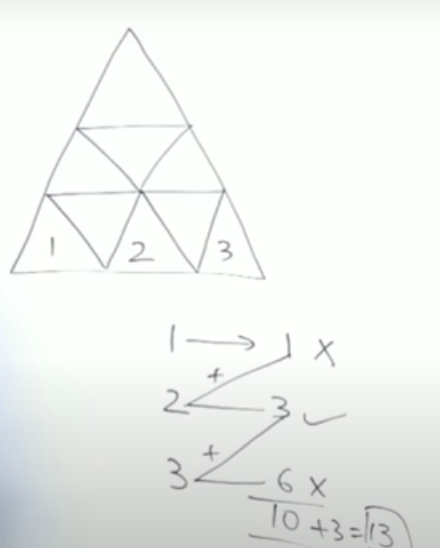 1 2 3
1 → 1 x
+
2 3 ✓
+
3 6 x
10 +3=13